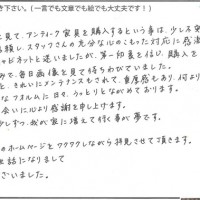 き下さい。(一言でも文章でも絵でも大丈夫です！)
見て、アンティーク家具を購入するという事は、少し
スタッフさんの充分な心のこもった対応に感
ャビネットと迷いましたが、第一印象を信じ、購入を
毎日画像を見て待ちわびていました。
きれいにメンテナンスもされて、重厚感もあり、何より
なフォルムに日々、うっとりとながめております。
会いに心より感謝を申し上げます。
少しずつ、我が家に増えて行く事が夢です。
のホームページをワクワクしながら拝見させて頂きます。
世話になりまして
ざいました。